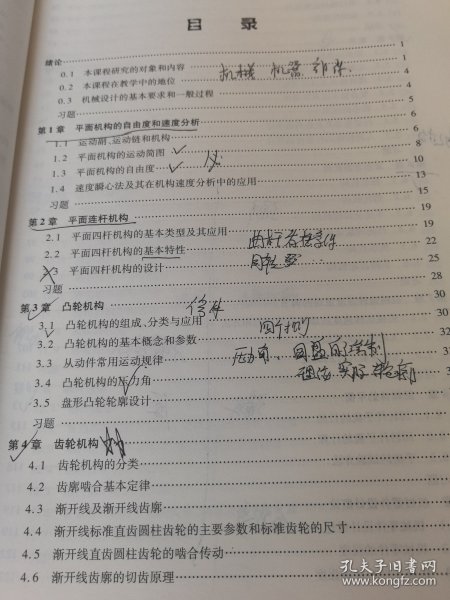 目 录
绪论 1
0.1 本课程研究的对象和内容 1
0.2 本课程在教学中的地位 4
0.3 机械设计的基本要求和一般过程 4
习题 5
机械 机器 构件
第1章 平面机构的自由度和速度分析 6
1.1 运动副、运动链和机构 6
1.2 平面机构的运动简图 8
1.3 平面机构的自由度 10
1.4 速度瞬心法及其在机构速度分析中的应用 13
习题 15
第2章 平面连杆机构 19
2.1 平面四杆机构的基本类型及其应用 19
2.2 平面四杆机构的基本特性 22
2.3 平面四杆机构的设计 25
习题 28
第3章 凸轮机构 30
3.1 凸轮机构的组成、分类与应用 30
3.2 凸轮机构的基本概念和参数 32
3.3 从动件常用运动规律
3.4 凸轮机构的压力角
3.5 盘形凸轮轮廓设计
习题
第4章 齿轮机构
4.1 齿轮机构的分类
4.2 齿廓啮合基本定律
4.3 渐开线及渐开线齿廓
4.4 渐开线标准直齿圆柱齿轮的主要参数和标准齿轮的尺寸
4.5 渐开线直齿圆柱齿轮的啮合传动
4.6 渐开线齿廓的切齿原理
孔夫子旧书网
www.kongfz.com